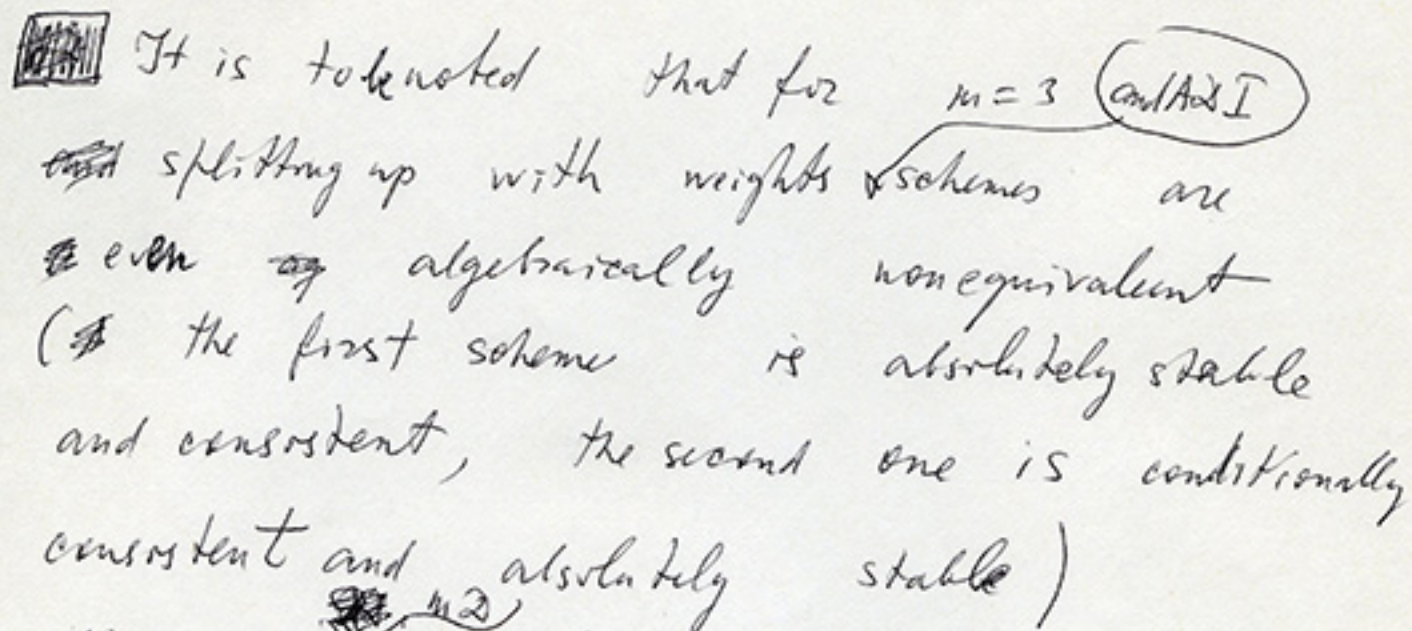 It is to be noted that for m = 3
splitting up with weights and ADI schemes are
even algebraically nonequivalent
( the first scheme is absolutely stable
and consistent, the second one is conditionally
consistent and absolutely stable )